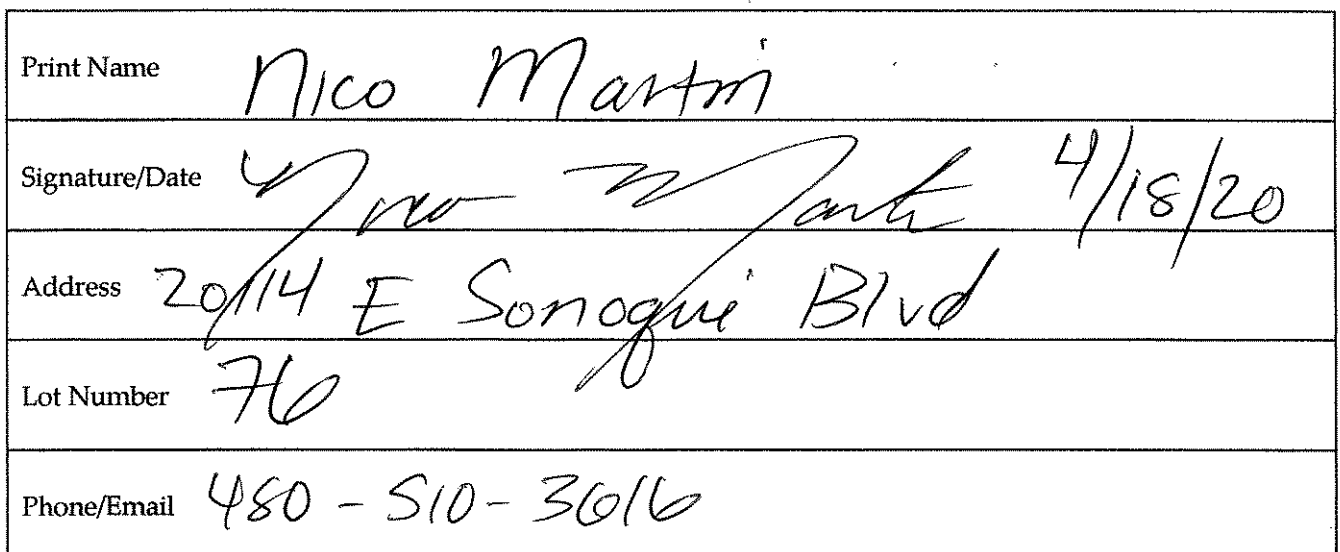 Print Name Nico Martin
Signature/Date Nico Martin 4/18/20
Address 20114 E Sonoqui Blvd
Lot Number 76
Phone/Email 480-510-3616